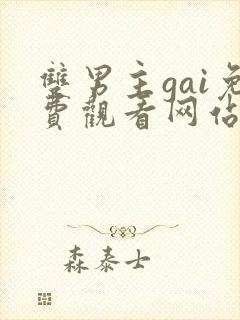 雙男主gai免
費觀看网佔
森泰士